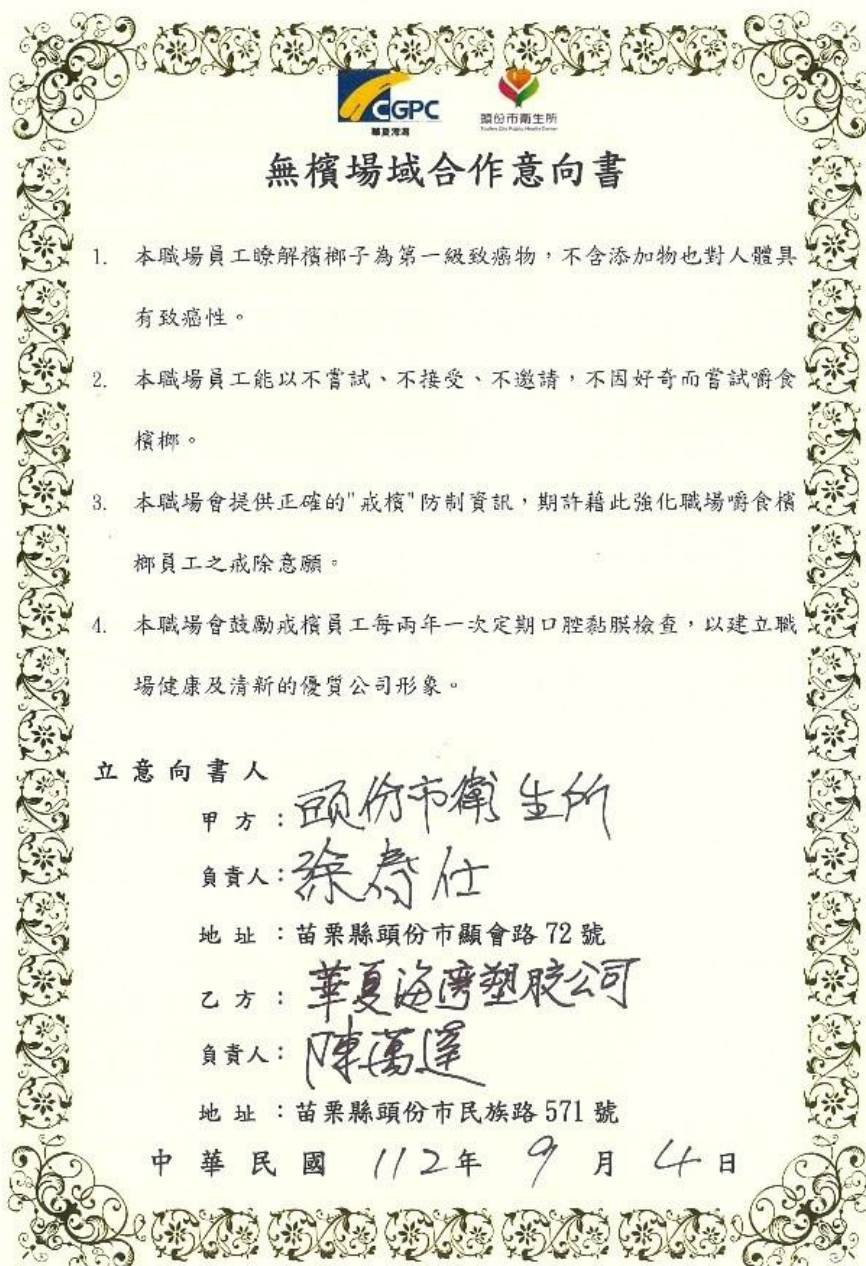 CGPC
華夏海灣
頭份市衛生所
Toufen City Public Health Center
無檳場域合作意向書
1. 本職場員工瞭解檳榔子為第一級致癌物，不含添加物也對人體具
有致癌性。
2. 本職場員工能以不嘗試、不接受、不邀請，不因好奇而嘗試嚼食
檳榔。
3. 本職場會提供正確的"戒檳"防制資訊，期許藉此強化職場嚼食檳
榔員工之戒除意願。
4. 本職場會鼓勵戒檳員工每兩年一次定期口腔黏膜檢查，以建立職
場健康及清新的優質公司形象。
立意向書人
甲方：頭份市衛生所
負責人：徐 仕
地址：苗栗縣頭份市顯會路 72 號
乙方：華夏海灣塑膠公司
負責人：陳萬
地址：苗栗縣頭份市民族路 571 號
中華民國 112年 9 月 4 日